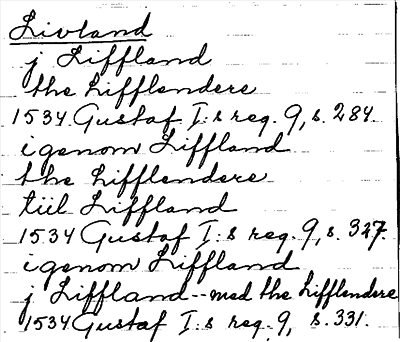 Livland
j Liffland
the Lifflendere
1534 Gustaf I:s reg. 9, s. 284.
igenom Liffland
the Lifflendere
tiil Liffland
1534 Gustaf I:s reg. 9, s. 327.
igenom Liffland
j Liffland--med the Lifflendere
1534 Gustaf I:s reg. 9, s. 331.